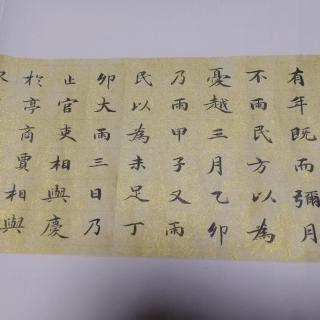 有年既而彌月
不雨民方以為
憂越三月乙卯
乃雨甲子又雨
民以為未足丁
卯大雨三日乃
止官吏相與慶
於亭商賈相與